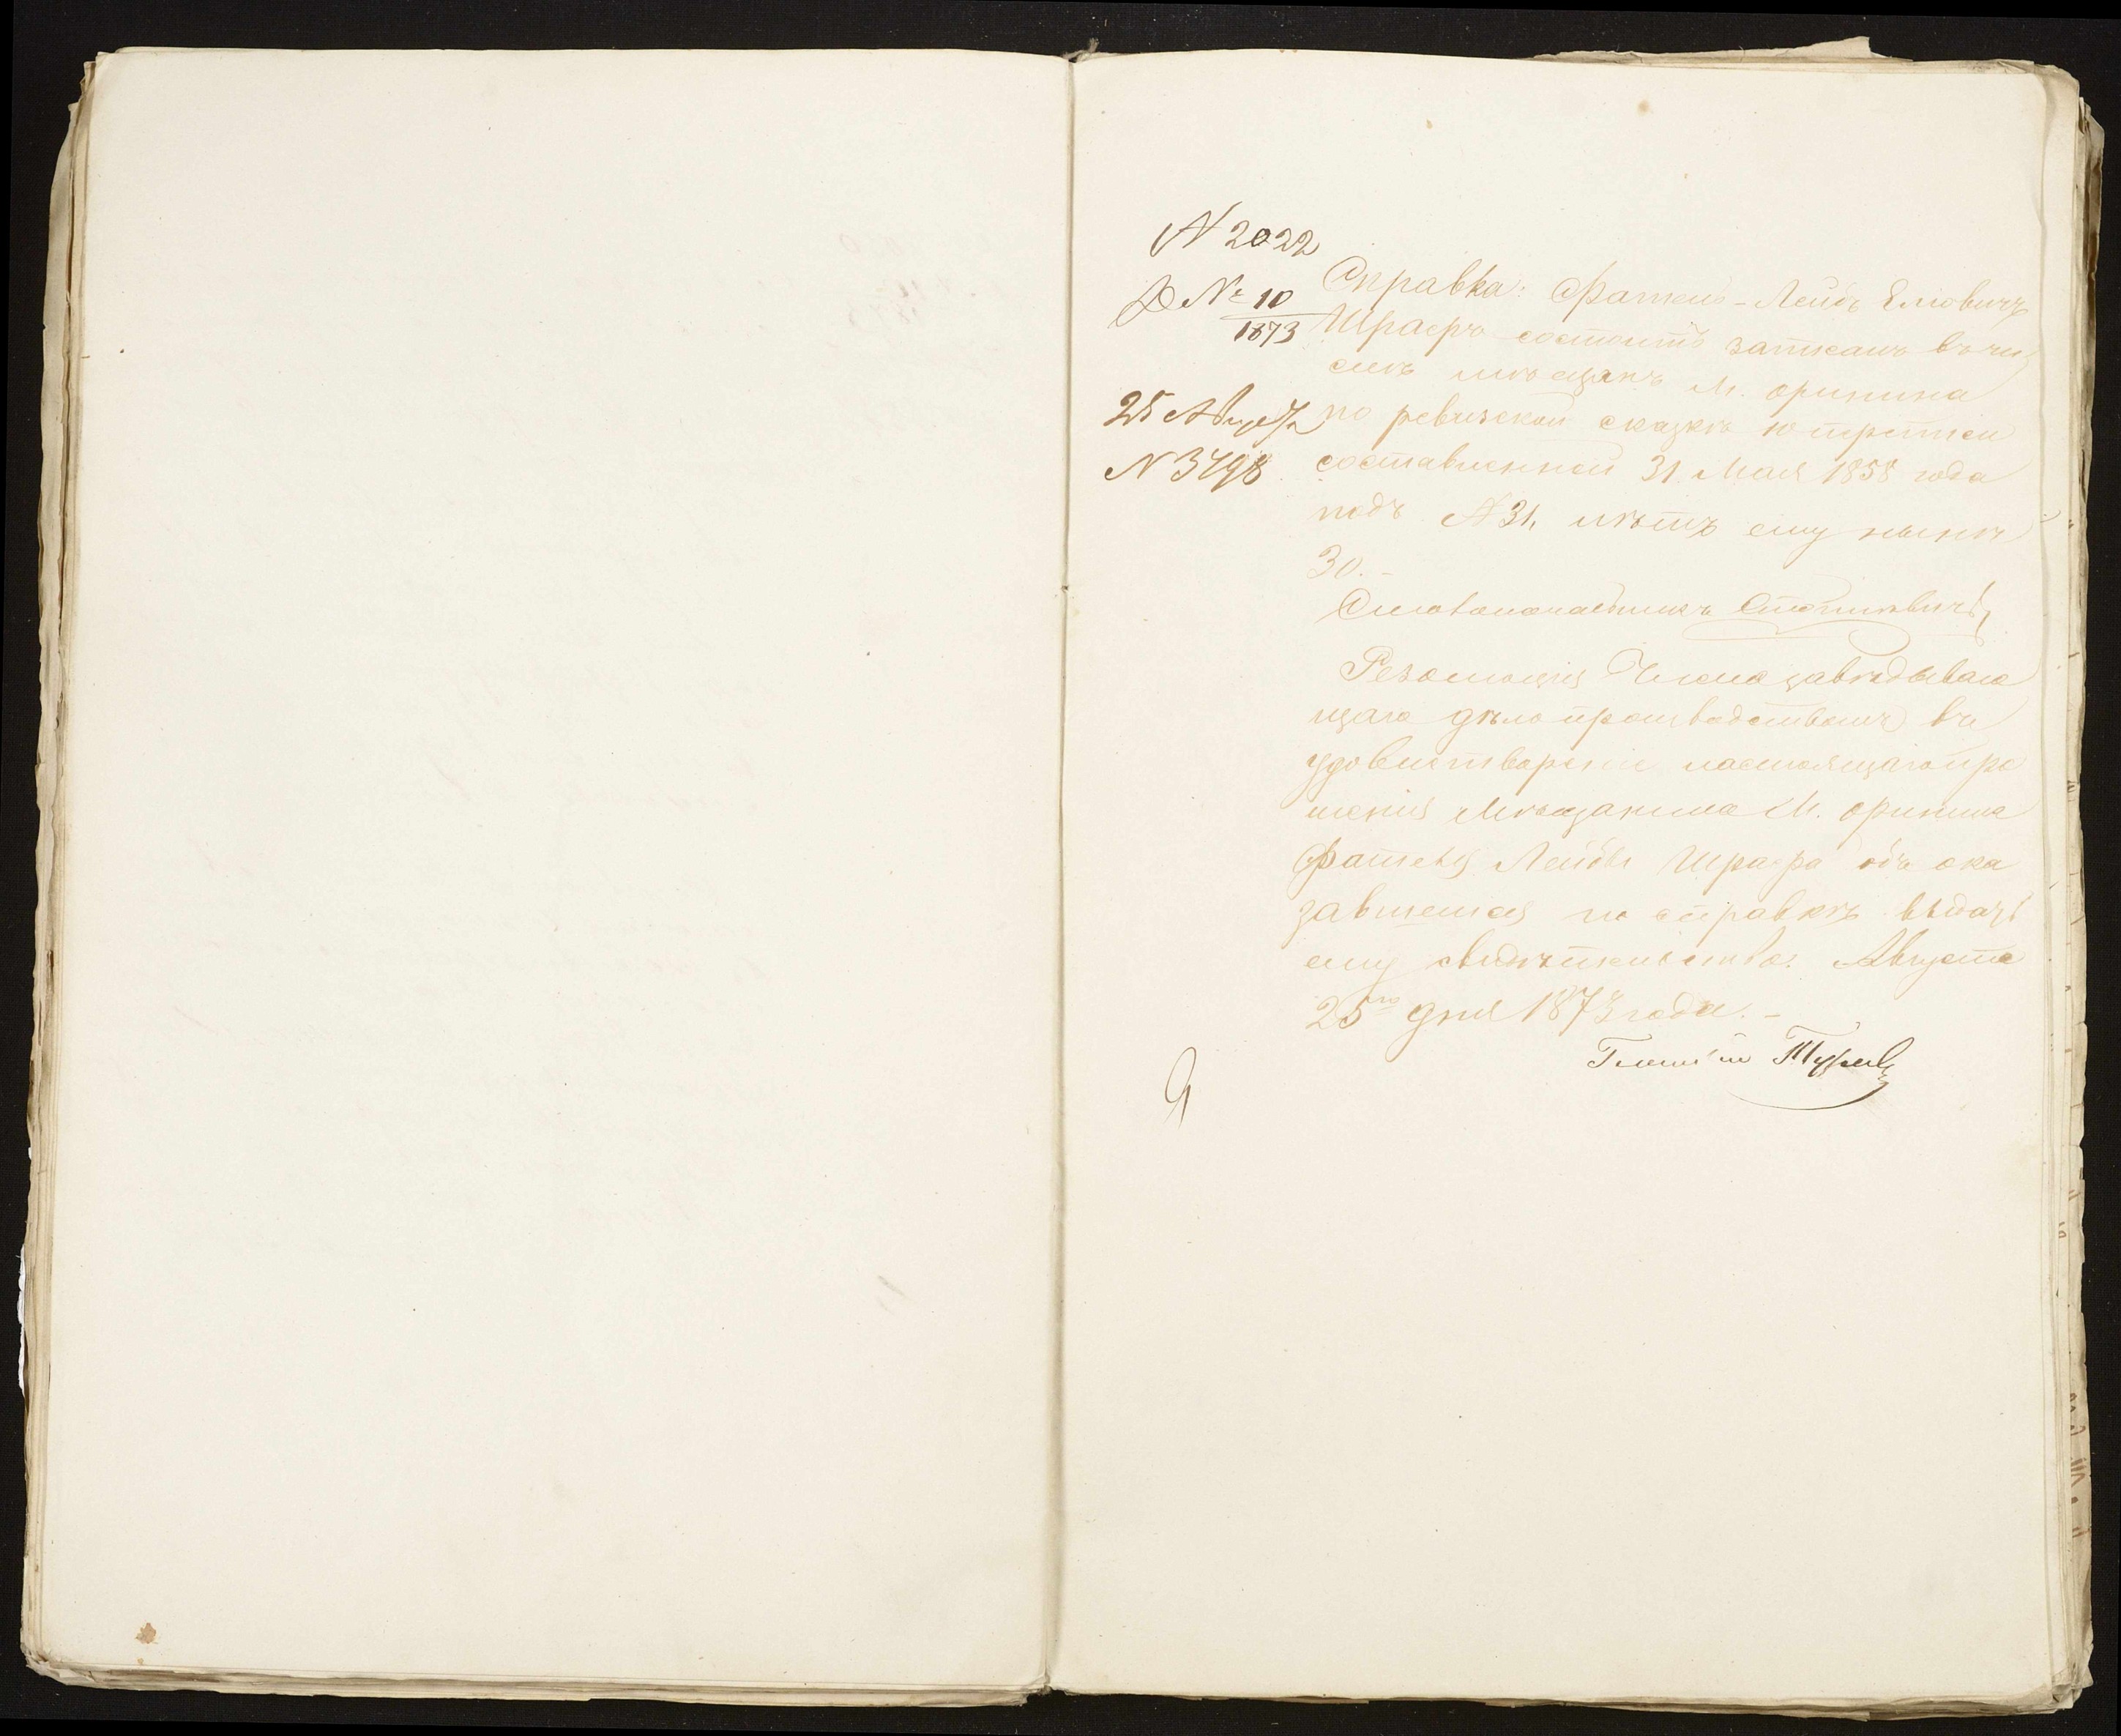 N 2022
Д № 10
1873
25 Августа
N 3498
Справка: Фатель-Лейбъ
Шраеръ состоитъ записанъ въ чи
слѣ мѣщанъ м. Оринина
по ревизской сказкѣ 10 переписи
составленной 31 Мая 1858 года
подъ N 31, лѣтъ ему нынѣ
30.-
Столоначальникъ
Резолюція Члена завѣдываю
щаго дѣлопроизводствомъ въ
удовлетвореніе настоящаго про
шенія мѣщанина м. Оринина
Фателя Лейбы Шраера объ ока
завшемся по справкѣ выдать
ему свидѣтельство. Августа
25го дня 1873 года.-